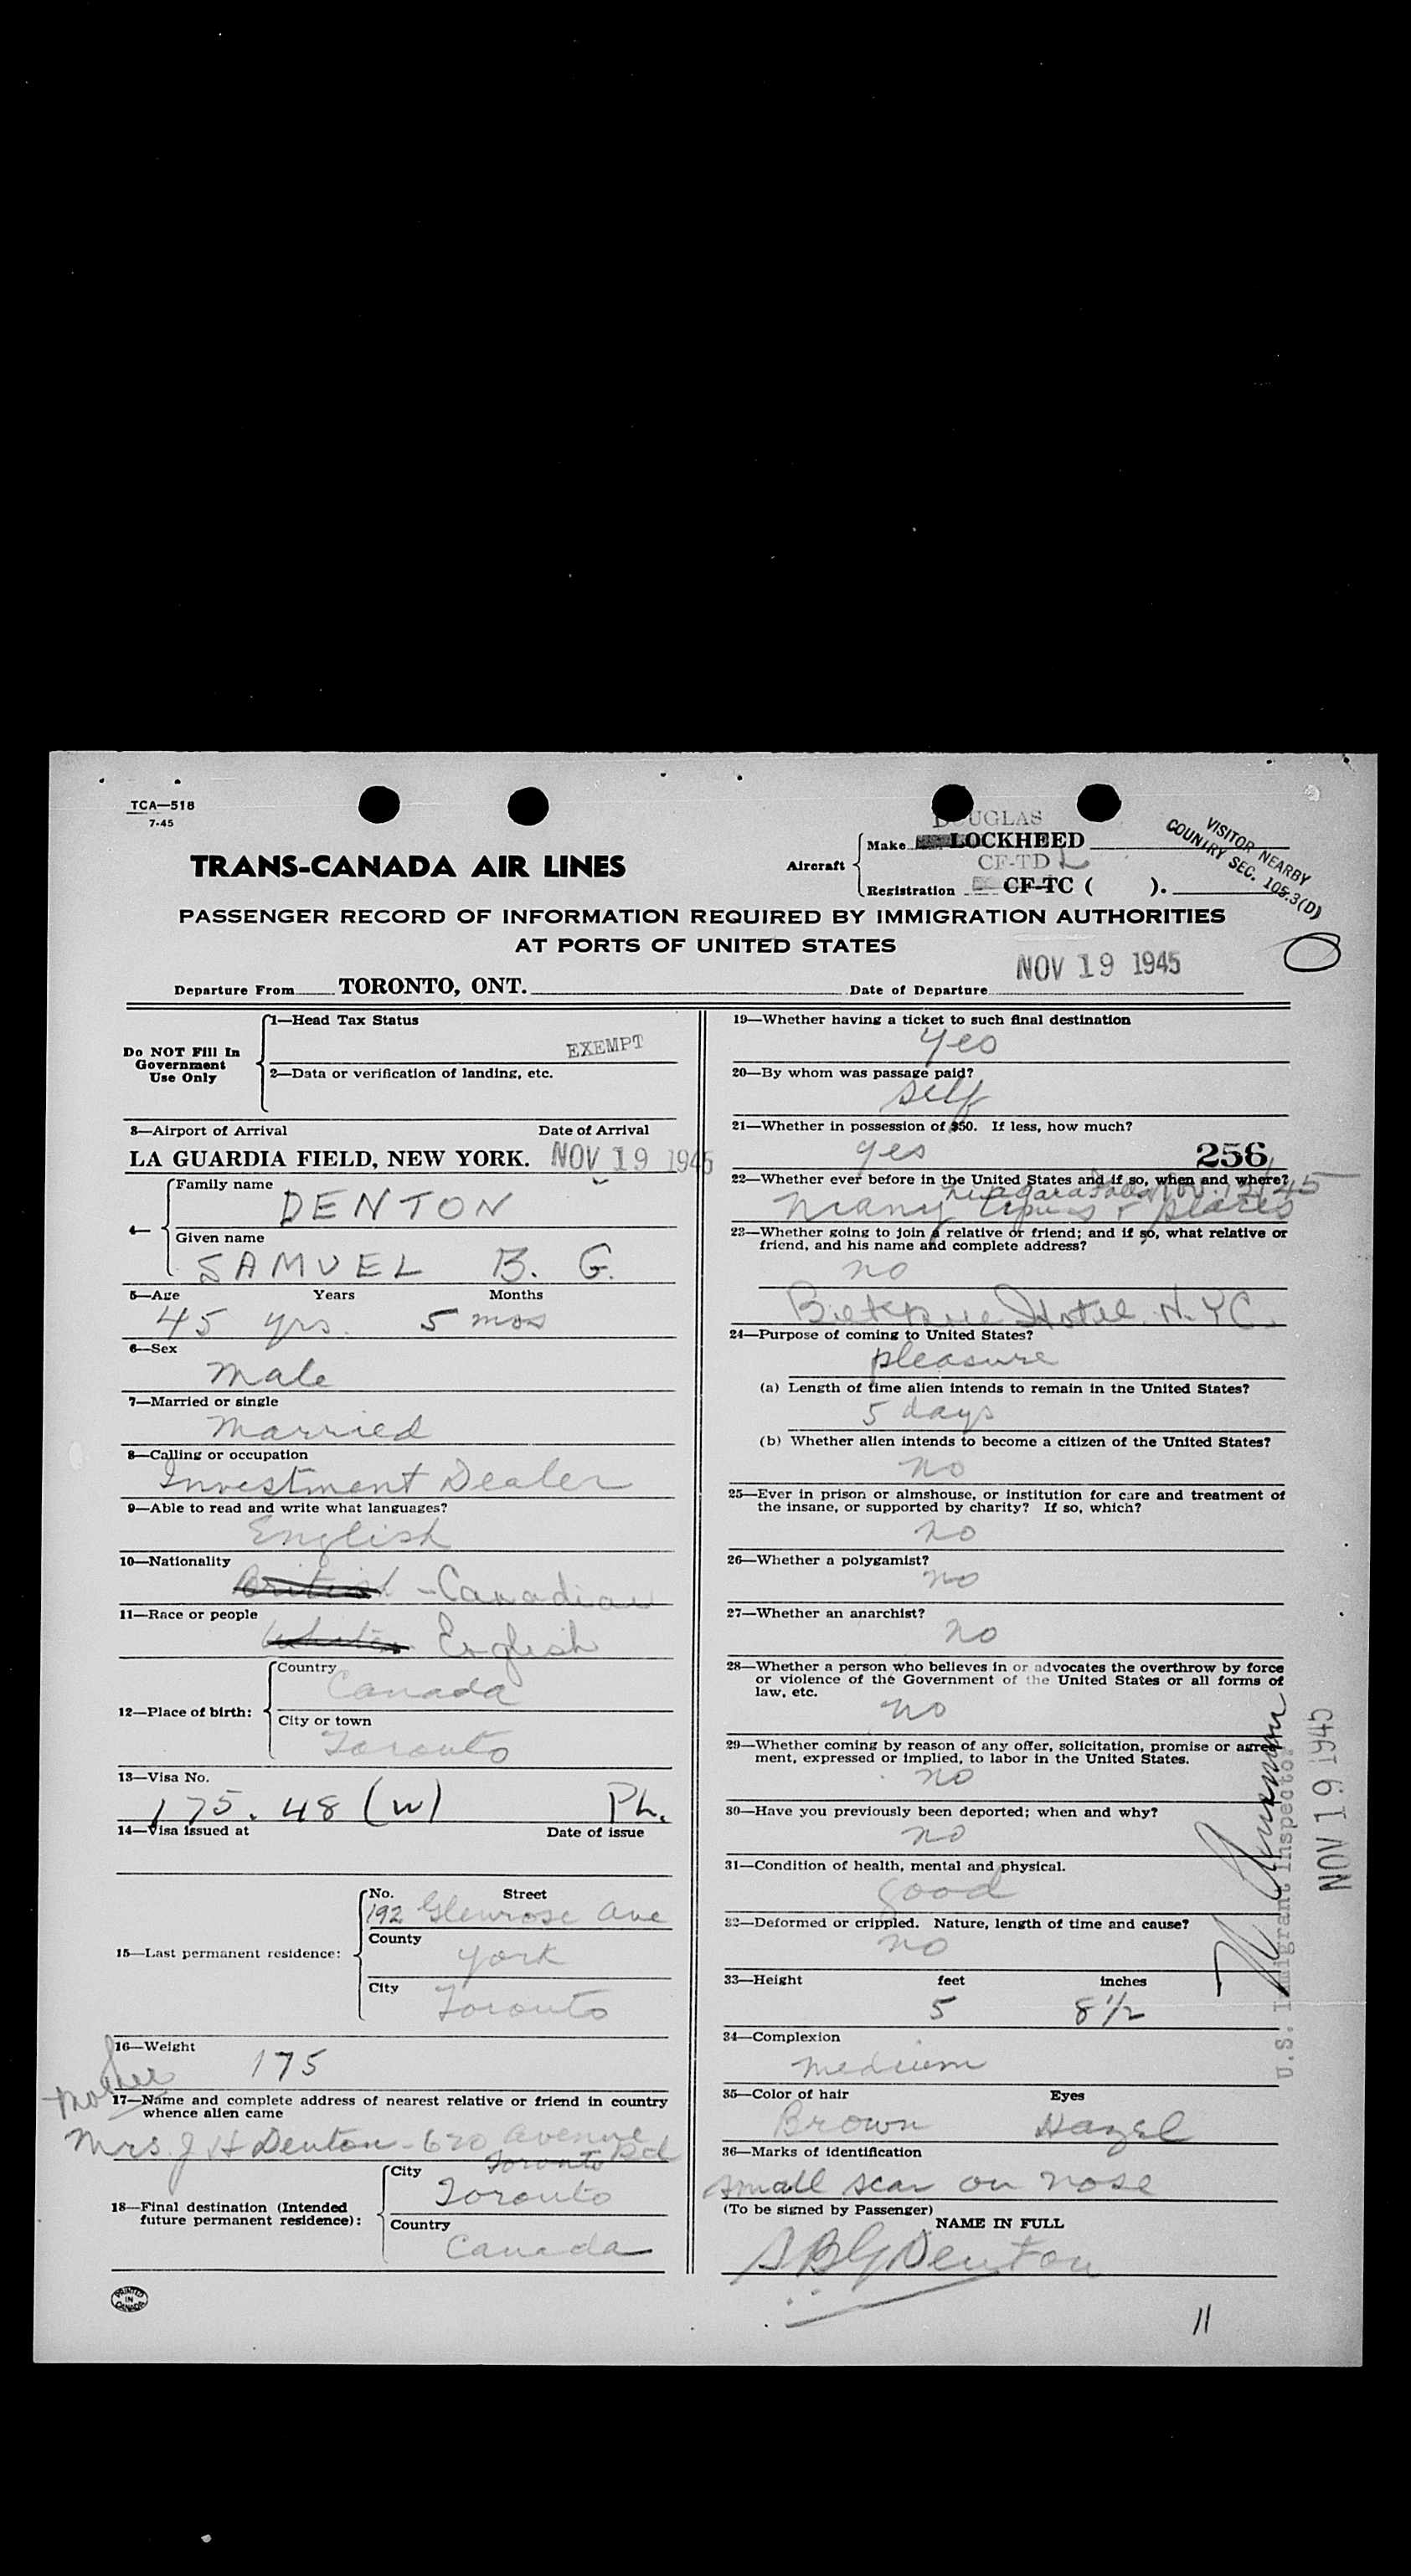 TCA—518
7-45
DOUGLAS
Make LOCKHEED
TRANS-CANADA AIR LINES
Aircraft
CF-TD L
Registration CF-TC ( ).
VISITOR NEARBY
COUNTRY SEC. 105.3(D)
PASSENGER RECORD OF INFORMATION REQUIRED BY IMMIGRATION AUTHORITIES
AT PORTS OF UNITED STATES
NOV 19 1945
Departure From TORONTO, ONT. Date of Departure
Do NOT Fill In
Government
Use Only
1—Head Tax Status
EXEMPT
2—Data or verification of landing, etc.
3—Airport of Arrival Date of Arrival
LA GUARDIA FIELD, NEW YORK. NOV 19 1945
4—
Family name
DENTON
Given name
SAMUEL B. G.
5—Age Years Months
45 yrs. 5 mos
6—Sex
Male
7—Married or single
Married
8—Calling or occupation
Investment Dealer
9—Able to read and write what languages?
English
10—Nationality
British - Canadian
11—Race or people
White English
12—Place of birth:
Country
Canada
City or town
Toronto
13—Visa No.
175.48 (W) Ph.
14—Visa issued at Date of issue
15—Last permanent residence:
No. Street
192 Glenrose Ave
County
York
City
Toronto
16—Weight
175
Mother
17—Name and complete address of nearest relative or friend in country
whence alien came
Mrs. J H Denton - 620 Avenue Rd
Toronto
18—Final destination (Intended
future permanent residence):
City
Toronto
Country
Canada
PRINTED
IN
CANADA
19—Whether having a ticket to such final destination
yes
20—By whom was passage paid?
self
21—Whether in possession of $50. If less, how much?
yes
256
22—Whether ever before in the United States and if so, when and where?
Niagara Falls Nov. 12/45
Many times & places
23—Whether going to join a relative or friend; and if so, what relative or
friend, and his name and complete address?
no
Hotel N.Y.C.
24—Purpose of coming to United States?
pleasure
(a) Length of time alien intends to remain in the United States?
5 days
(b) Whether alien intends to become a citizen of the United States?
no
25—Ever in prison or almshouse, or institution for care and treatment of
the insane, or supported by charity? If so, which?
no
26—Whether a polygamist?
no
27—Whether an anarchist?
no
28—Whether a person who believes in or advocates the overthrow by force
or violence of the Government of the United States or all forms of
law, etc.
no
29—Whether coming by reason of any offer, solicitation, promise or agree-
ment, expressed or implied, to labor in the United States.
no
30—Have you previously been deported; when and why?
no
31—Condition of health, mental and physical.
good
32—Deformed or crippled. Nature, length of time and cause?
no
33—Height feet inches
5 8 1/2
34—Complexion
medium
35—Color of hair Eyes
Brown Hazel
36—Marks of identification
small scar on nose
(To be signed by Passenger)
NAME IN FULL
S B G Denton
U.S. Immigrant Inspector
NOV 19 1945
11